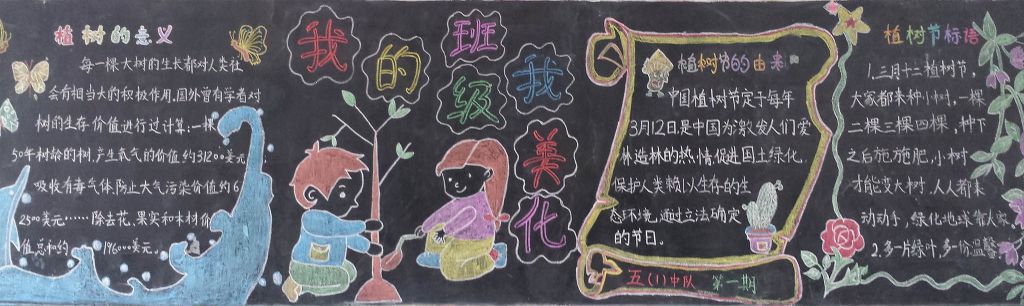 植树的意义
每一棵大树的生长都对人类社
会有相当大的积极作用.国外曾有学者对
树的生存价值进行过计算:一棵
50年树龄的树,产生氧气的价值约31200美元
吸收有毒气体,防止大气污染价值约6
2500美元……除去花、果实和木材价
值,总和约 196000美元.
我的班级我美化
植树节的由来
中国植树节定于每年
3月12日,是中国为激发人们爱
林造林的热情,促进国土绿化,
保护人类赖以生存的生
态环境,通过立法确定
的节日。
五(1)中队 第一期
植树节标语
1.三月十二植树节,
大家都来种小树,一棵
二棵三棵四棵,种下
之后施施肥,小树
才能变大树,人人都来
动动手,绿化地球靠大家
2.多一片绿叶,多一份温馨